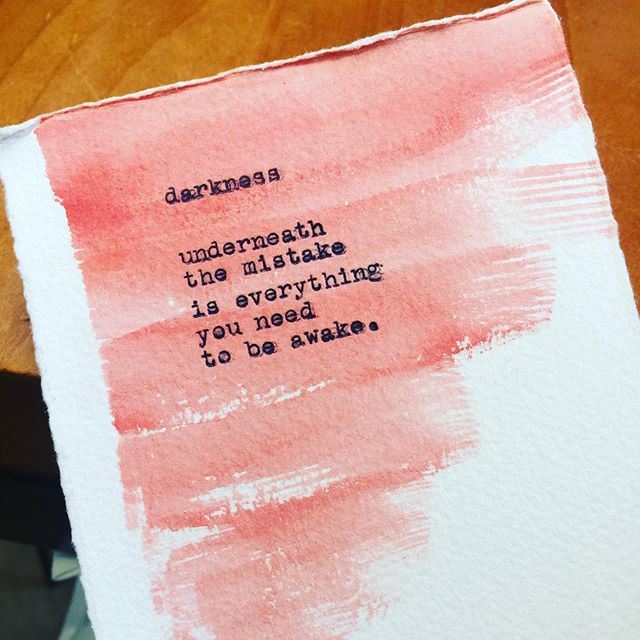 darkness
underneath
the mistake
is everything
you need
to be awake.